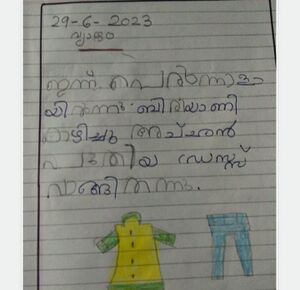 29-6-2023
വ്യാഴം
ഇന്ന് പെരുന്നാളാ
യിരുന്നു ബിരിയാണി
കഴിച്ചു അച്ഛൻ
പുതിയ ഡ്രസ്സ്
വാങ്ങിതന്നു.